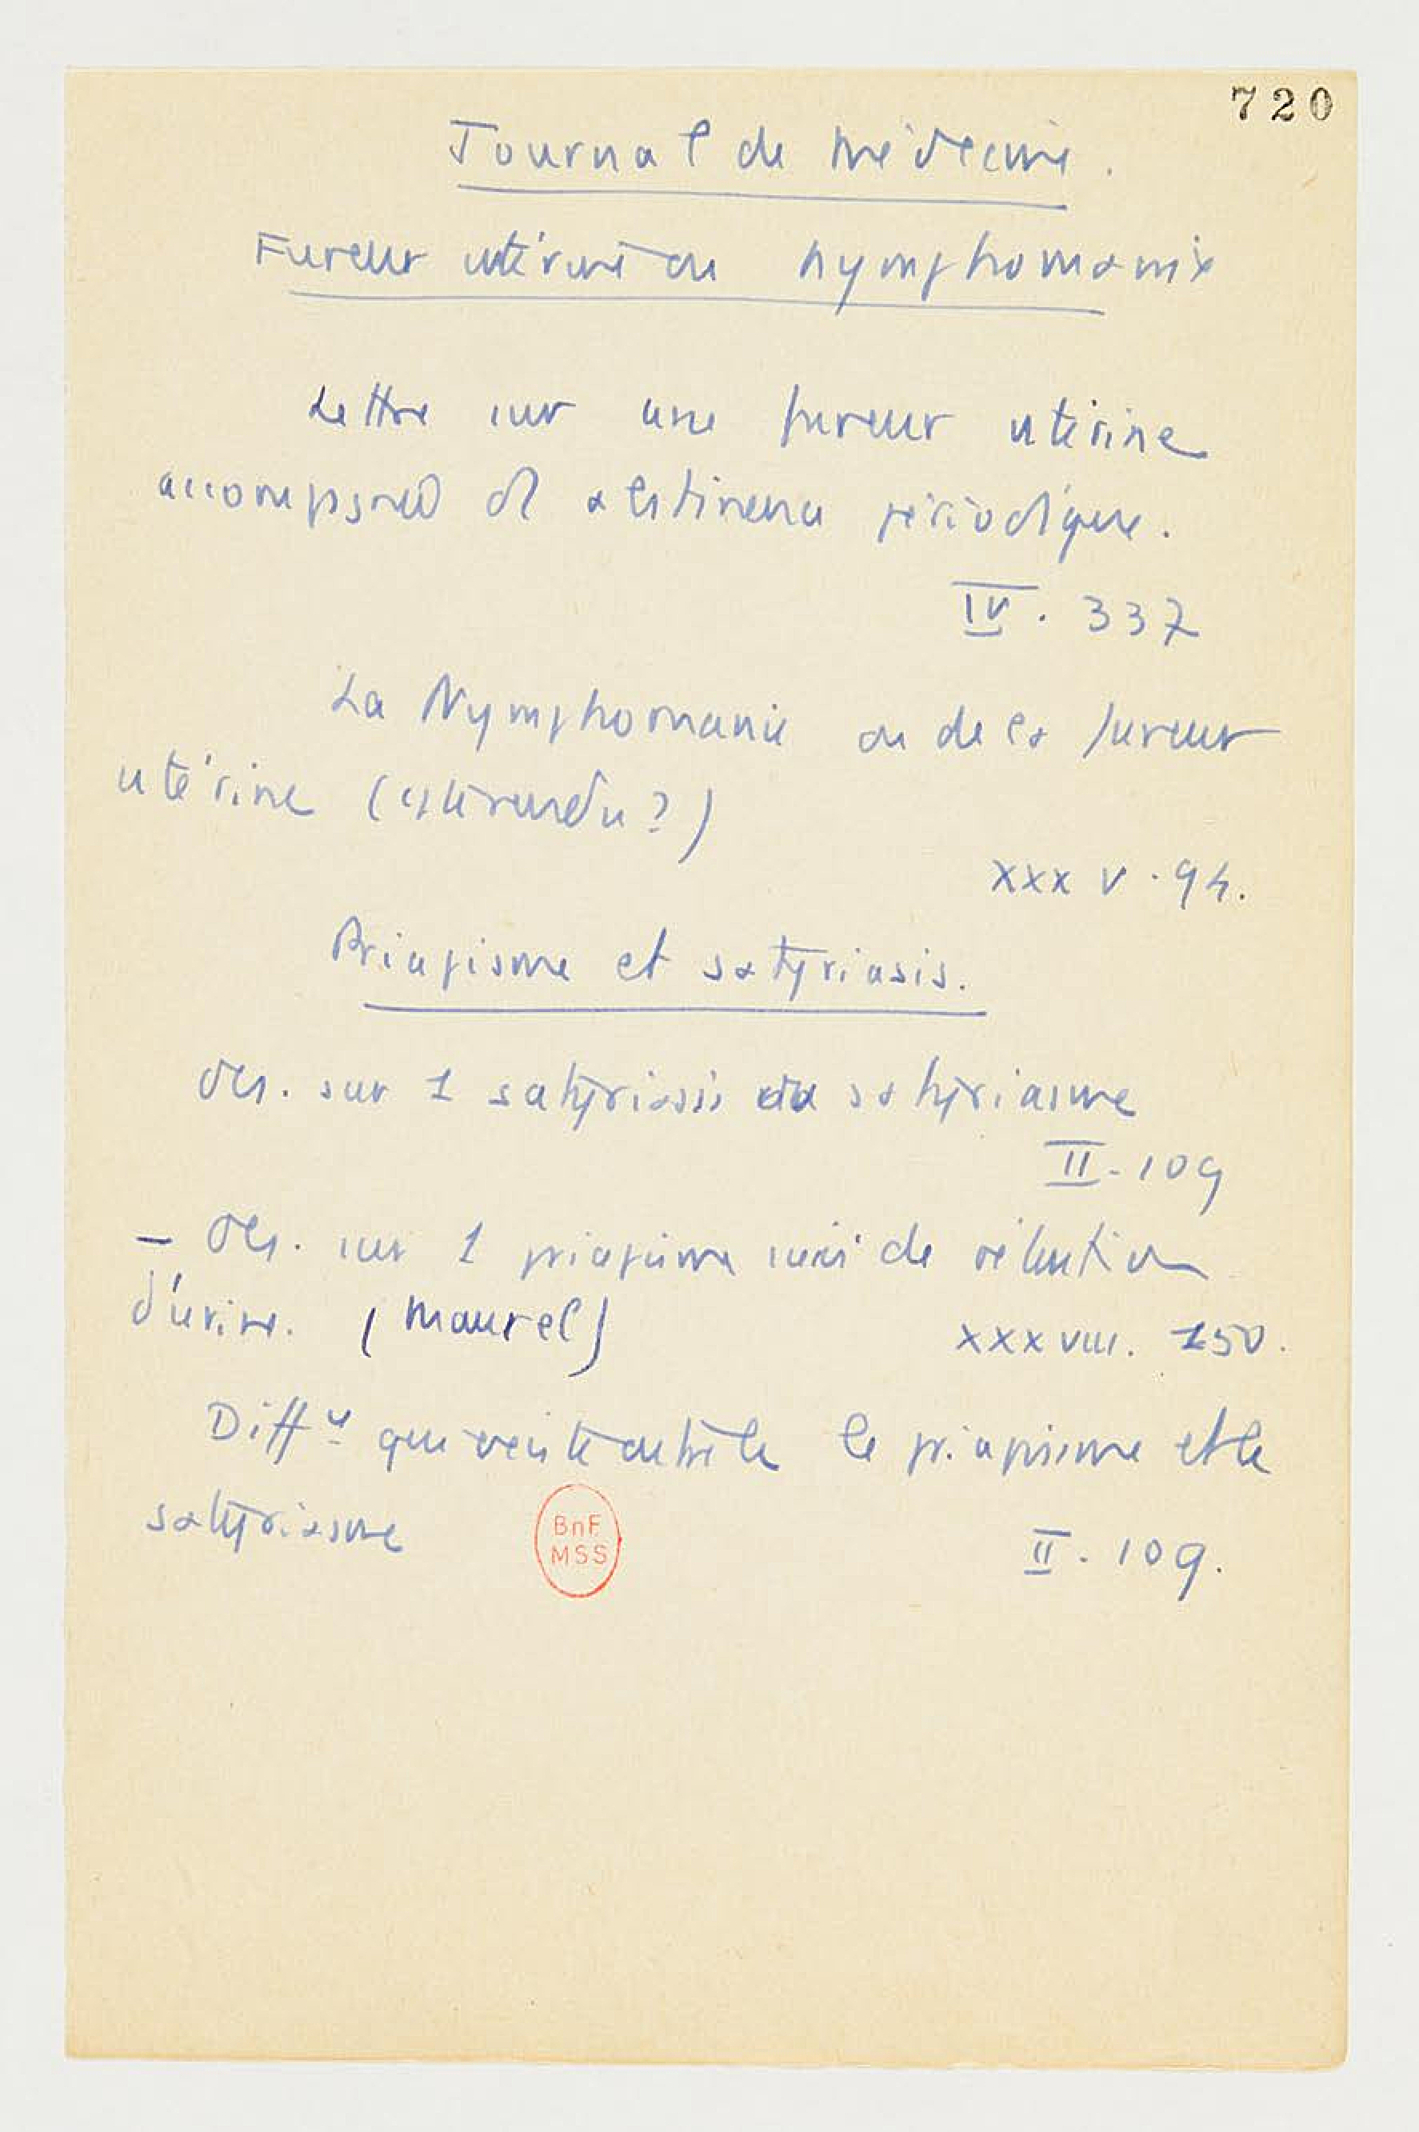 720
Journal de médecine.
Fureur utérine ou nymphomanie
Lettre sur une fureur utérine
accompagnée d'abstinence périodique.
IV. 337
La Nymphomanie ou de la fureur
utérine (          ?)
XXXV. 94.
Priapisme et satyriasis.
Obs. sur 1 satyriasis ou satyriasme
II. 109
– Obs. sur 1 priapisme suivi de rétention
d'urine. (Maurel)
XXXVIII. 250.
Diffce qui existe entre le priapisme et le
satyriasme
BnF
MSS
II. 109.